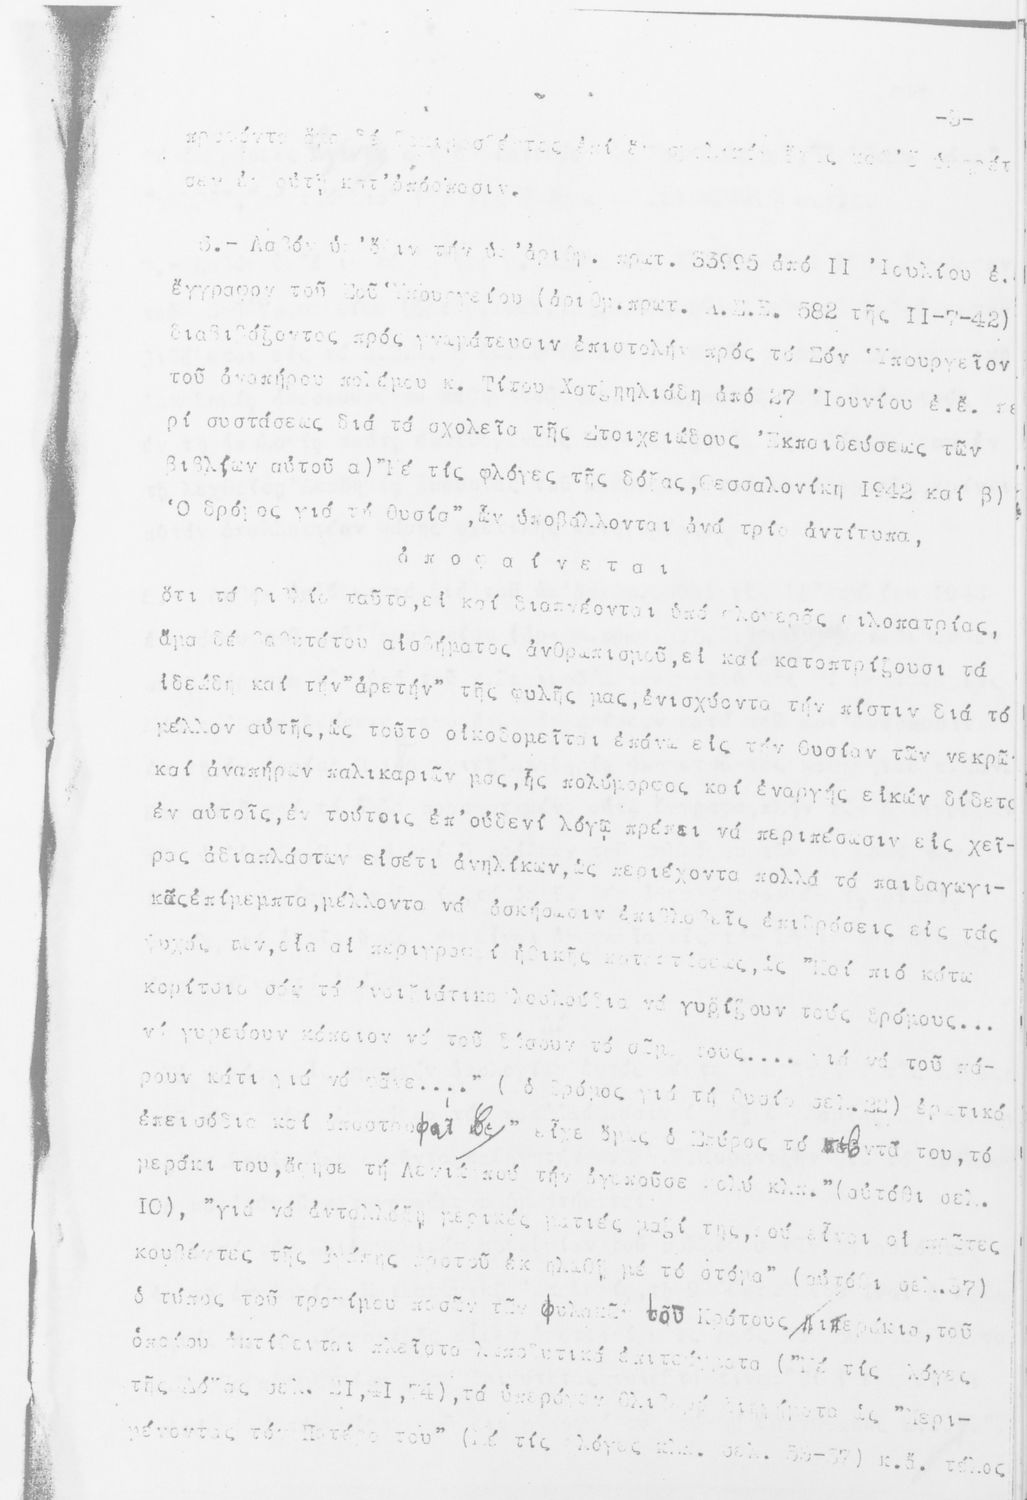 σεν ἐν αὐτῇ κατ'ἀπόσπασιν.
6.- Λαβόν ὑπ'ὄψιν τήν ὑπ'ἀριθμ. πρωτ. 33995 ἀπό II 'Ιουλίου ἐ.
ἔγγραφον τοῦ Σοῦ Ὑπουργείου (ἀριθμ.πρωτ. Α.Σ.Ε. 582 τῆς II-7-42)
διαβιβάζοντος πρός γνωμάτευσιν ἐπιστολήν πρός τό Σόν Ὑπουργεῖον
τοῦ ἀναπήρου πολέμου κ. Τίτου Χατζηηλιάδη ἀπό 27 'Ιουνίου ἐ.ἔ. πε
ρί συστάσεως διά τά σχολεῖα τῆς Στοιχειώδους 'Εκπαιδεύσεως τῶν
βιβλίων αὐτοῦ α)"Μέ τίς φλόγες τῆς δόξας,Θεσσαλονίκη I942 καί β)
'Ο δρόμος γιά τή θυσία",ὧν ὑποβάλλονται ἀνά τρία ἀντίτυπα,
ἀ π ο φ α ί ν ε τ α ι
ὅτι τά βιβλία ταῦτα,εἰ καί διαπνέονται ὑπό φλογερᾶς φιλοπατρίας,
ἅμα δέ βαθυτάτου αἰσθήματος ἀνθρωπισμοῦ,εἰ καί κατοπτρίζουσι τά
ἰδεώδη καί τήν"ἀρετήν" τῆς φυλῆς μας,ἐνισχύοντα τήν πίστιν διά τό
μέλλον αὐτῆς,ὡς τοῦτο οἰκοδομεῖται ἐπάνω εἰς τήν θυσίαν τῶν νεκρῶν
καί ἀναπήρων παλικαριῶν μας,ἧς πολύμορφος καί ἐναργής εἰκών δίδετα
ἐν αὐτοῖς,ἐν τούτοις ἐπ'οὐδενί λόγῳ πρέπει νά περιπέσωσιν εἰς χεῖ-
ρας ἀδιαπλάστων εἰσέτι ἀνηλίκων,ὡς περιέχοντα πολλά τά παιδαγωγι-
κῶς ἐπίμεμπτα,μέλλοντα νά ἀσκήσωσιν ἐπιβλαβεῖς ἐπιδράσεις εἰς τάς
ψυχάς των,οἷα αἱ περιγραφαί ἠθικῆς καταπτώσεως,ὡς "Καί πιό κάτω
κορίτσια σάν τά ἀνοιξιάτικα λουλούδια νά γυρίζουν τούς δρόμους...
νά γυρεύουν κάποιον νά τοῦ δώσουν τό σῶμα τους.... γιά νά τοῦ πά-
ρουν κάτι γιά νά φᾶνε...." ( ὁ δρόμος γιά τή θυσία σελ.22) ἐρωτικά
ἐπεισόδια καί ὑποστροφαί ὡς " εἶχε ὅμως ὁ Σπύρος τό νταβαντᾶ του,τό
μεράκι του,ἄφησε τή Λενιώ πού τήν ἀγαποῦσε πολύ κλπ."(αὐτόθι σελ.
IO), "γιά νά ἀνταλλάξῃ μερικές ματιές μαζί της,πού εἶναι οἱ πρῶτες
κουβέντες τῆς ἀγάπης προτοῦ ἐκδηλωθῇ μέ τό στόμα" (αὐτόθι σελ.37)
ὁ τύπος τοῦ τροφίμου πασῶν τῶν φυλακῶν τοῦ Κράτους Πιπεράκια,τοῦ
ὁποίου ἐκτίθενται πλεῖστα λωποδυτικά ἐπιτεύγματα ("Μέ τίς φλόγες
τῆς Δόξας σελ. 2I,4I,74),τά ὑπεράγαν θλιβερά διηγήματα ὡς "Περι-
μένοντας τόν Πατέρα του" (Μέ τίς φλόγες κλπ. σελ. 53-57) κ.ἄ. τέλος